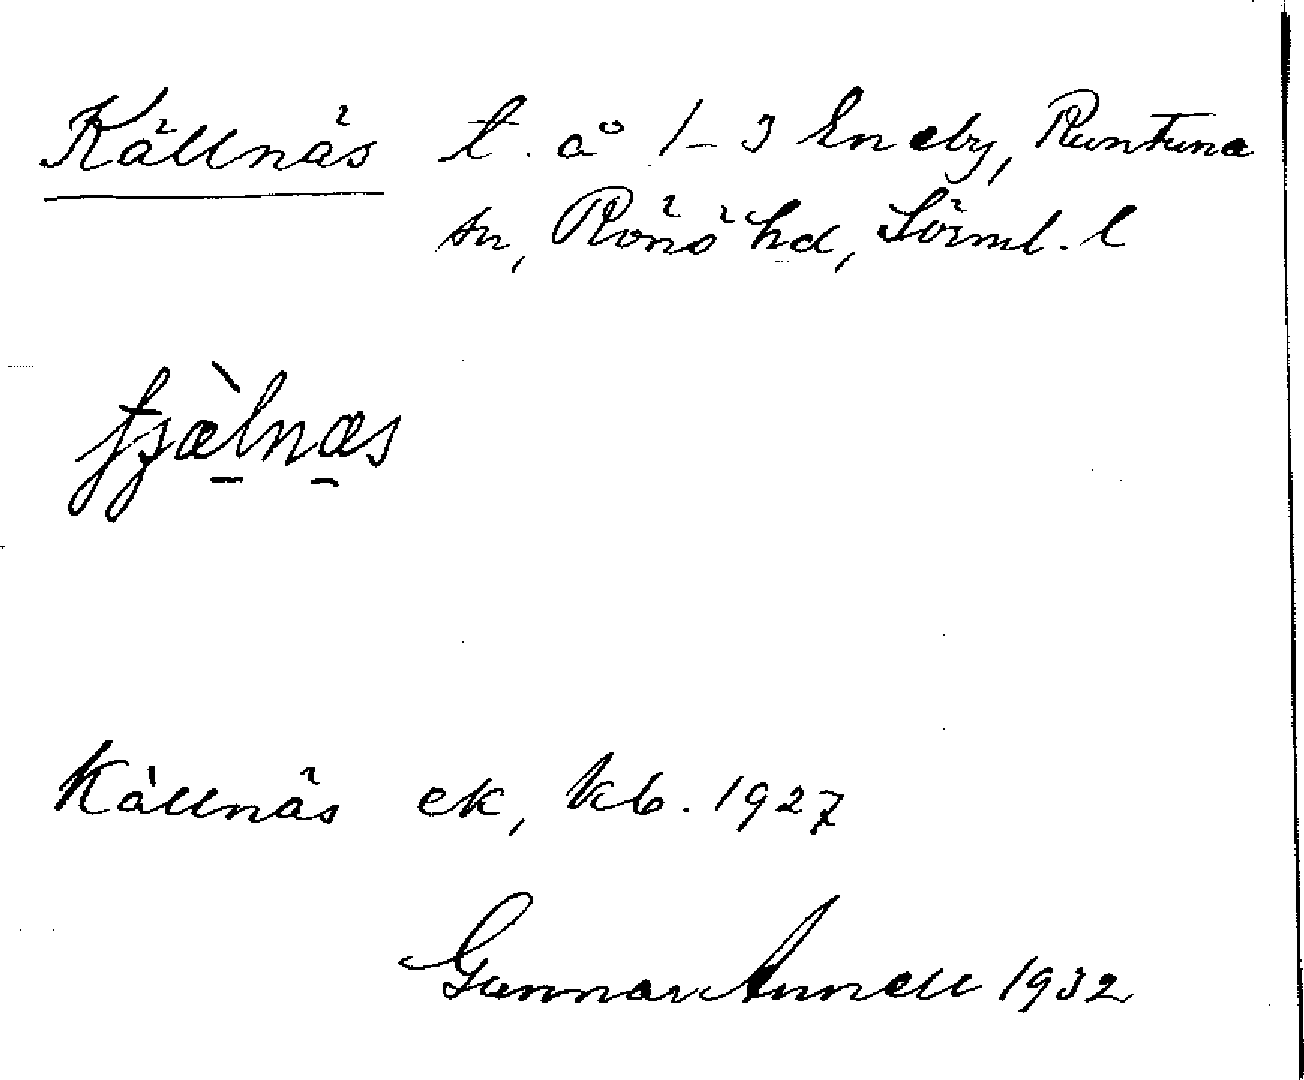 Källnäs t. å 1-3 Eneby, Runtuna
sn, Rönö hd, Sörml. l
Källnäs ek, kb. 1927
Gunnar Annell 1932